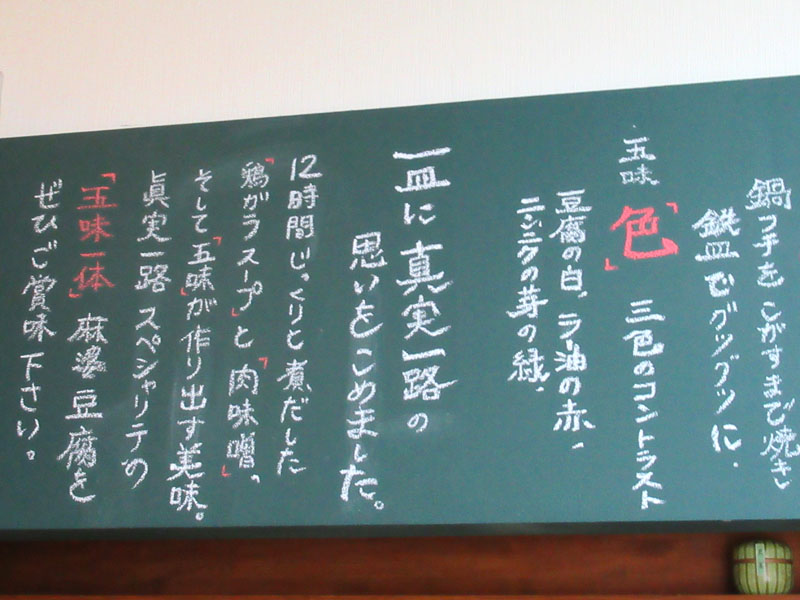 鍋フチをこがすまで焼き
鉄皿でグツグツに、
五味「色」三色のコントラスト
豆腐の白、ラー油の赤、
ニンニクの芽の緑、
一皿に真実一路の
思いをこめました。
12時間じっくりと煮だした
「鶏がラスープ」と「肉味噌」、
そして「五味」が作り出す美味。
眞実一路スペシャリテの
「五味一体」麻婆豆腐を
ぜひご賞味下さい。